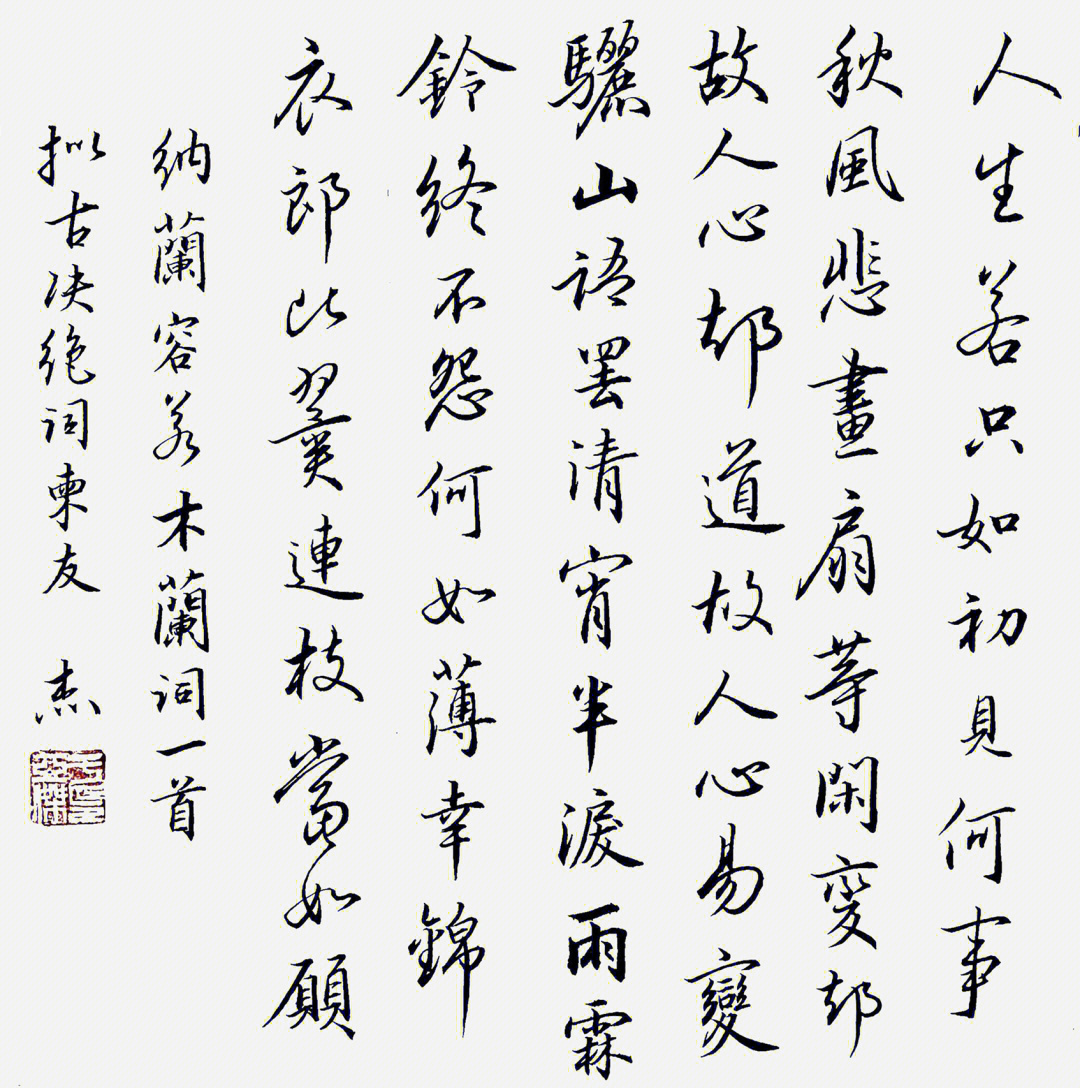 人生若只如初見何事
秋風悲畫扇等閑变却
故人心却道故人心易變
驪山語罢清宵半淚雨霖
鈴終不怨何如薄幸錦
衣郎比翼連枝當如願
納蘭容若木蘭詞一首
拟古决絶詞柬友 杰